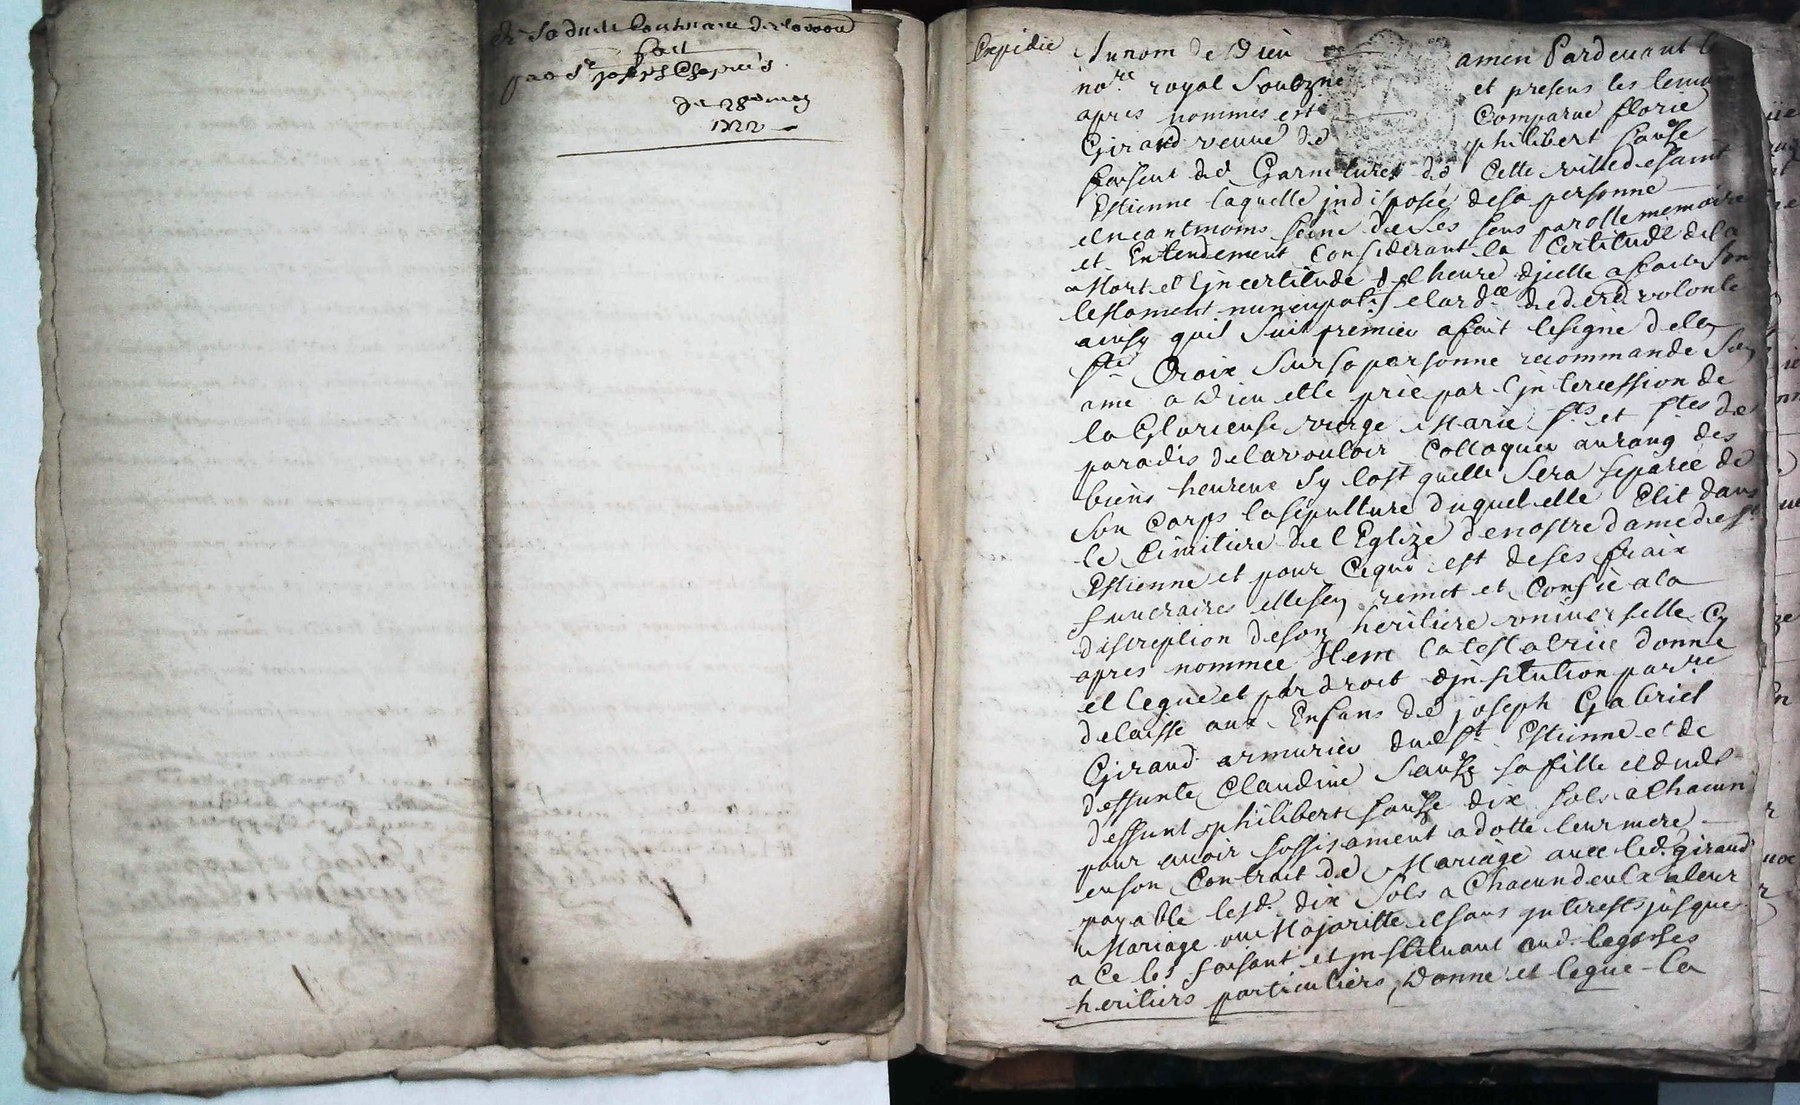 fait
par Sr
du 28e may
1722
Expedié
Au nom de Dieu amen Pardevant le
nore royal Soubzne et presens les temoins
apres nommes est Comparue florie
Girand veuve de philibert Sauze
faiseur de Garnitures de Cette ville de saint
Estienne laquelle jndisposée de sa personne
et neantmoins seine de ses sens parolle memoire
et Entendement Considerant la Certitude de la
Mort et Ljncertitude del heure djcelle a fait son
testament nuncupatif et ord.ce de dere volonte
ainsy quil Suit premier a fait le signe de la
Ste Croix Sur sa personne recommandé son
ame a Dieu elle prie par Ljntercession de
la Glorieuse vierge Marie Sts et Stes de
paradis de la vouloir Colloquer au rang des
biens heureux sy tost quelle Sera separée de
Son Corps la sepulture duquel elle Elit dans
le Cimitiere de l Eglize de nostre dame de St
Estienne et pour Cequi est de ses fraix
funeraires elle sen remet et Confie a la
discreption de son heritiere universelle Cy
apres nommée Item la testatrice donne
et legue et par droit djnstitution parre
delaisse aux Enfans de joseph Gabriel
Girand armurier dud. St Estienne et de
deffunte Claudine Sauze sa fille et dud.
deffunt philibert Sauze dix sols a Chacun
pour avoir suffisament a dotte leur mere
en son Contrait de Mariage avec led. girand
payable lesd. dix Sols a Chacun deux a leur
Mariage ou Majoritte et sans jnterests jusques
a Ce les faisant et jnstituant aud. legat ses
heritiers particuliers, Donne et legue la